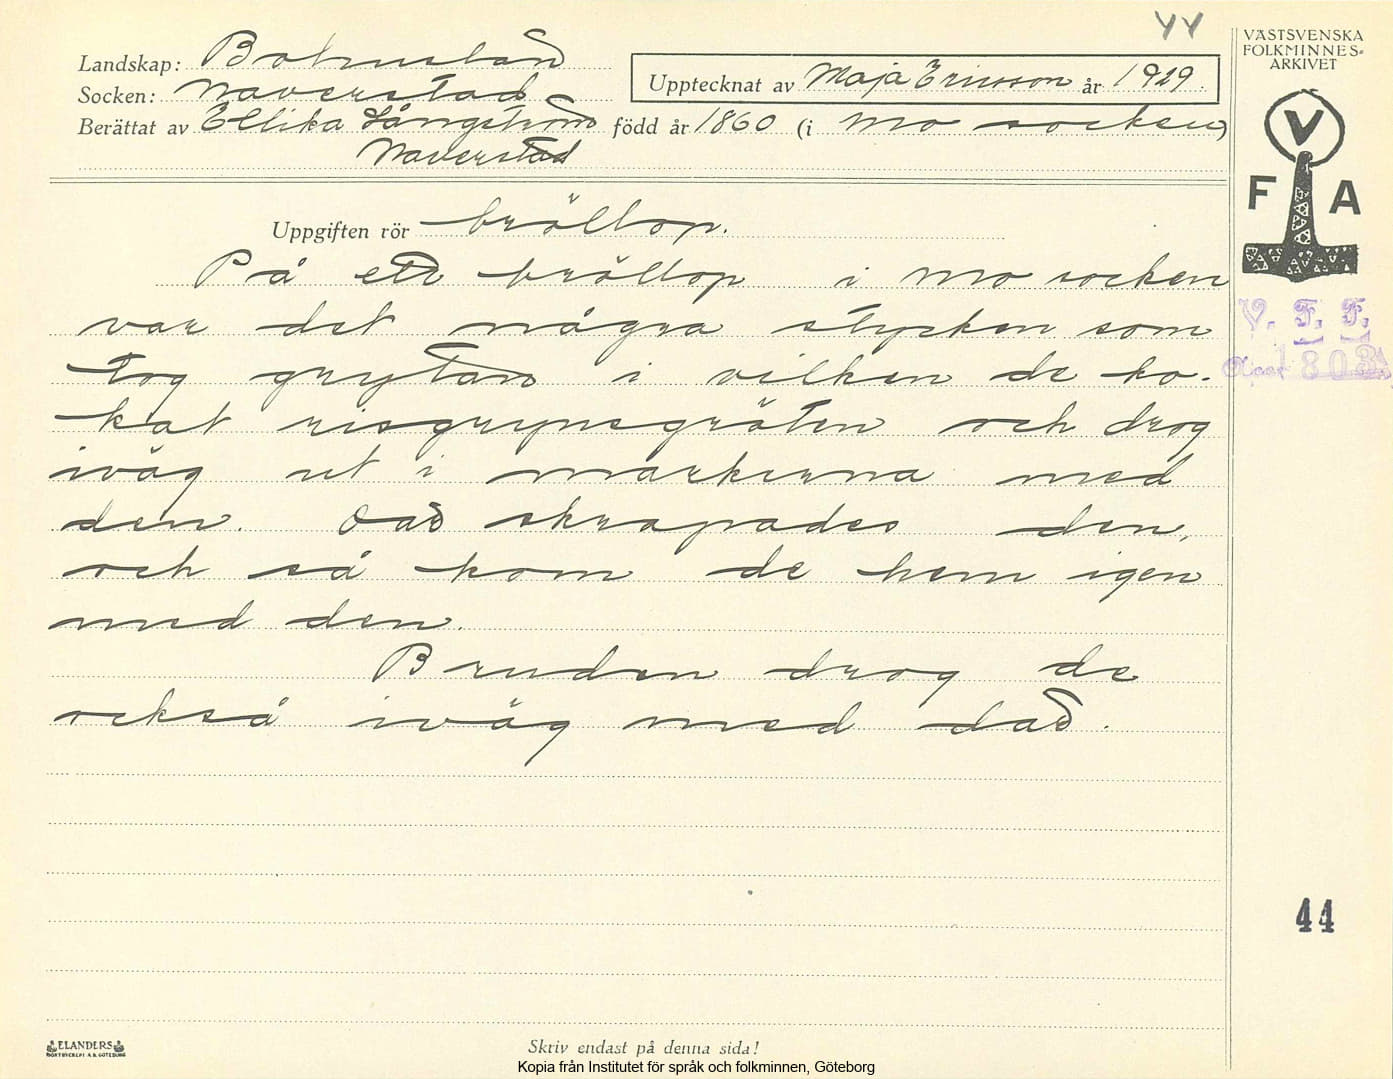 44
VÄSTSVENSKA
FOLKMINNES-
ARKIVET
Landskap: Bohuslän
Socken: Naverstad
Upptecknat av Maja Ericsson år 1929.
Berättat av Ellika Långström född år 1860 (i Mo socken)
Naverstad
V
F A
Uppgiften rör bröllop.
På ett bröllop i Mo socken
var det några stycken som
tog grytan i vilken de ko-
kat risgrynsgröten och drog
iväg ut i markerna med
den. Där skrapades den,
och så kom de hem igen
med den.
Bruden drog de
också iväg med där.
V. F. F.
803
44
ELANDERS
BOKTRYCKERI A.B. GÖTEBORG
Skriv endast på denna sida!
Kopia från Institutet för språk och folkminnen, Göteborg